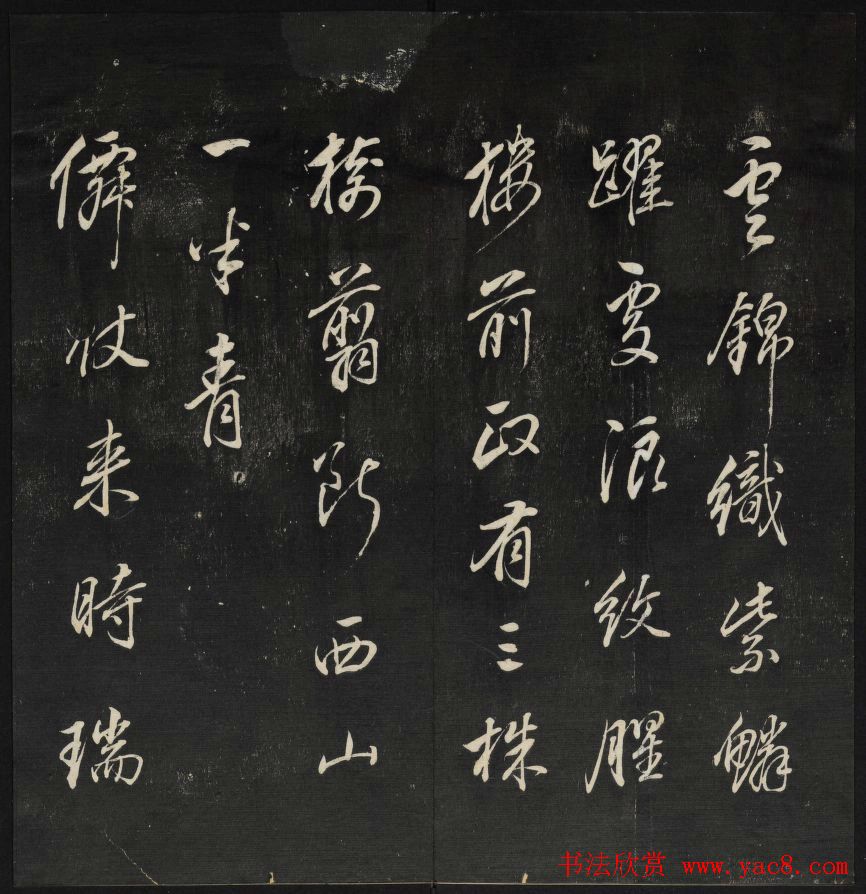 雲錦織紫鱗
躍處浪紋腥
樓前政有三株
樹翦斷西山
一半青
僊仗来時瑞
书法欣赏 www.yac8.com